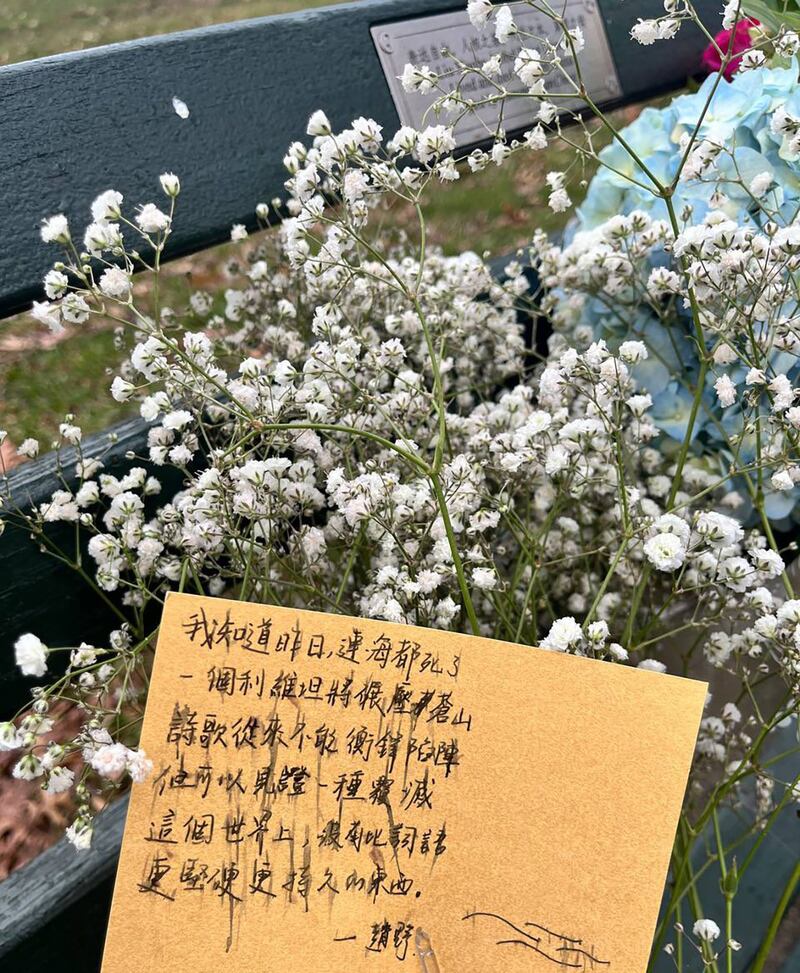 我知道昨日,連海都死了
一個利維坦將碾壓蒼山
詩歌從來不能衝鋒陷陣
但可以見證一種覆滅
這個世界上,沒有比詞語
更堅硬更持久的東西。
— 趙野